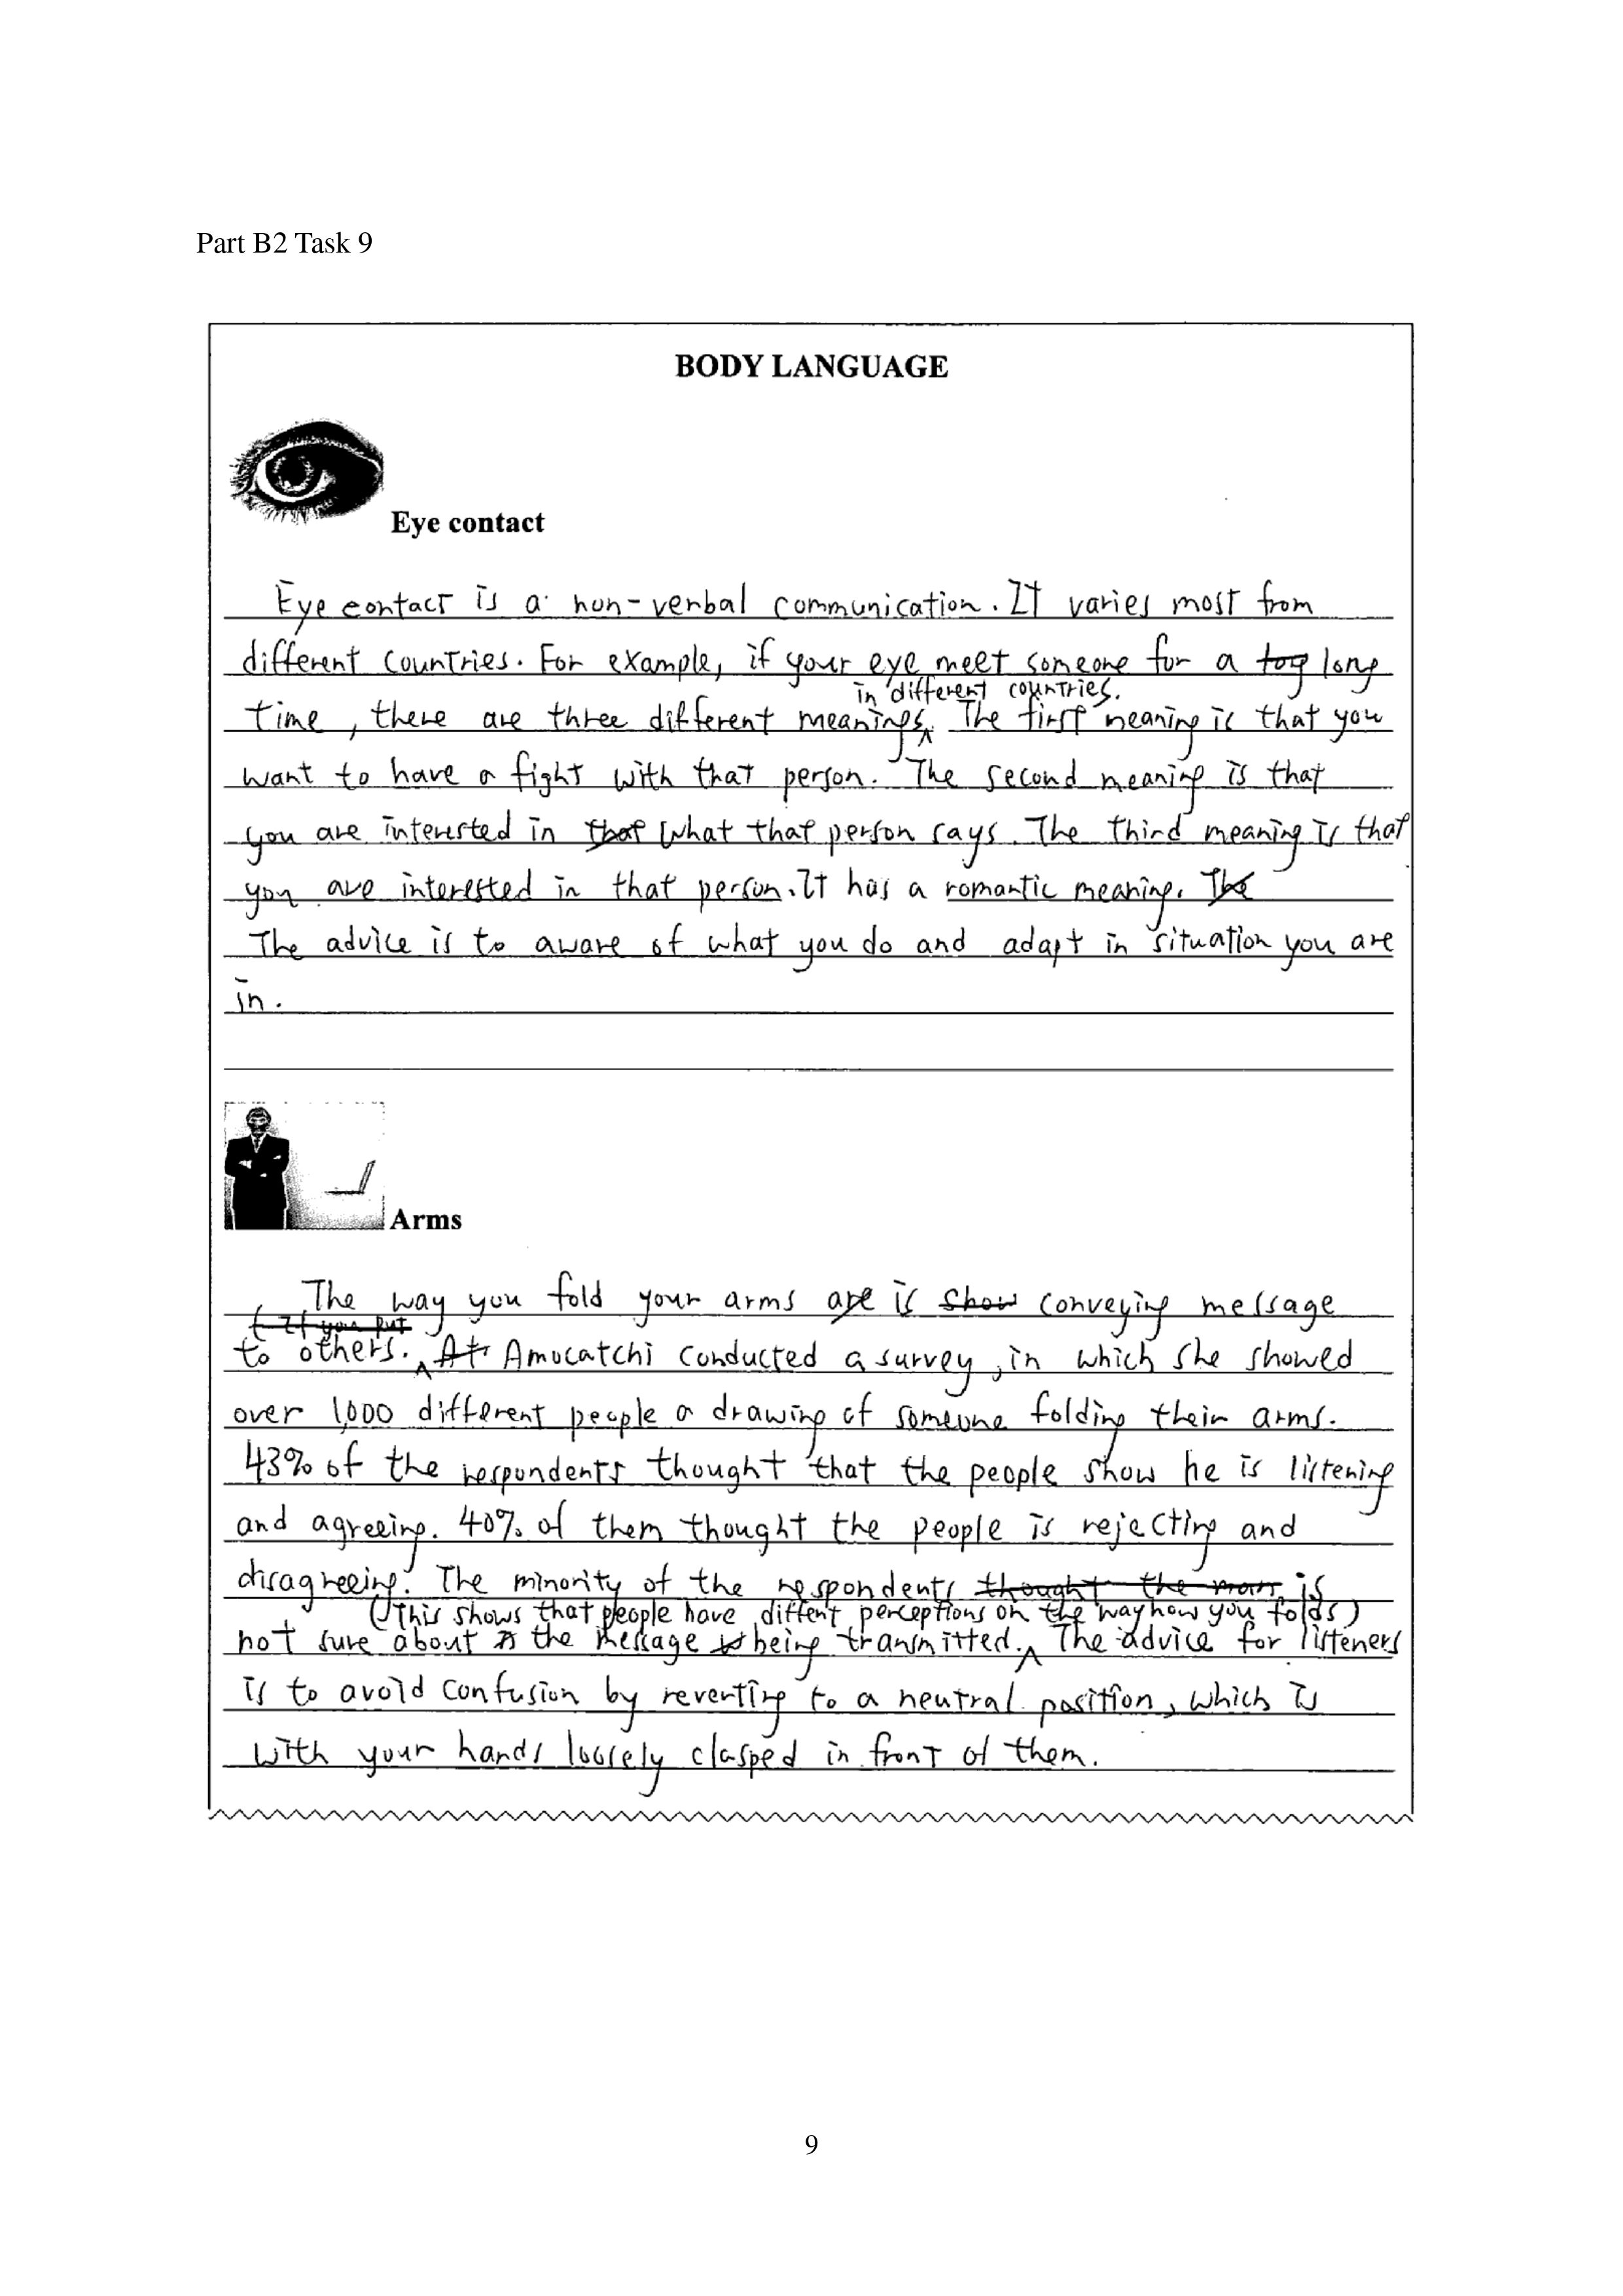 Part B2 Task 9
BODY LANGUAGE
Eye contact
Eye contact is a non-verbal communication. It varies most from
different countries. For example, if your eye meet someone for a long
in different countries.
time, there are three different meanings. The first meaning is that you
want to have a fight with that person. The second meaning is that
you are interested in what that person says. The third meaning is that
you are interested in that person. It has a romantic meaning.
The advice is to aware of what you do and adapt in situation you are
in.
Arms
The way you fold your arms is conveying message
to others. Amocatchi conducted a survey, in which she showed
over 1,000 different people a drawing of someone folding their arms.
43% of the respondents thought that the people show he is listening
and agreeing. 40% of them thought the people is rejecting and
disagreeing. The minority of the respondents is
(This shows that people have diffent perceptions on the way how you folds)
not sure about the message being transmitted. The advice for listeners
is to avoid confusion by reverting to a neutral position, which is
with your hands loosely clasped in front of them.
9